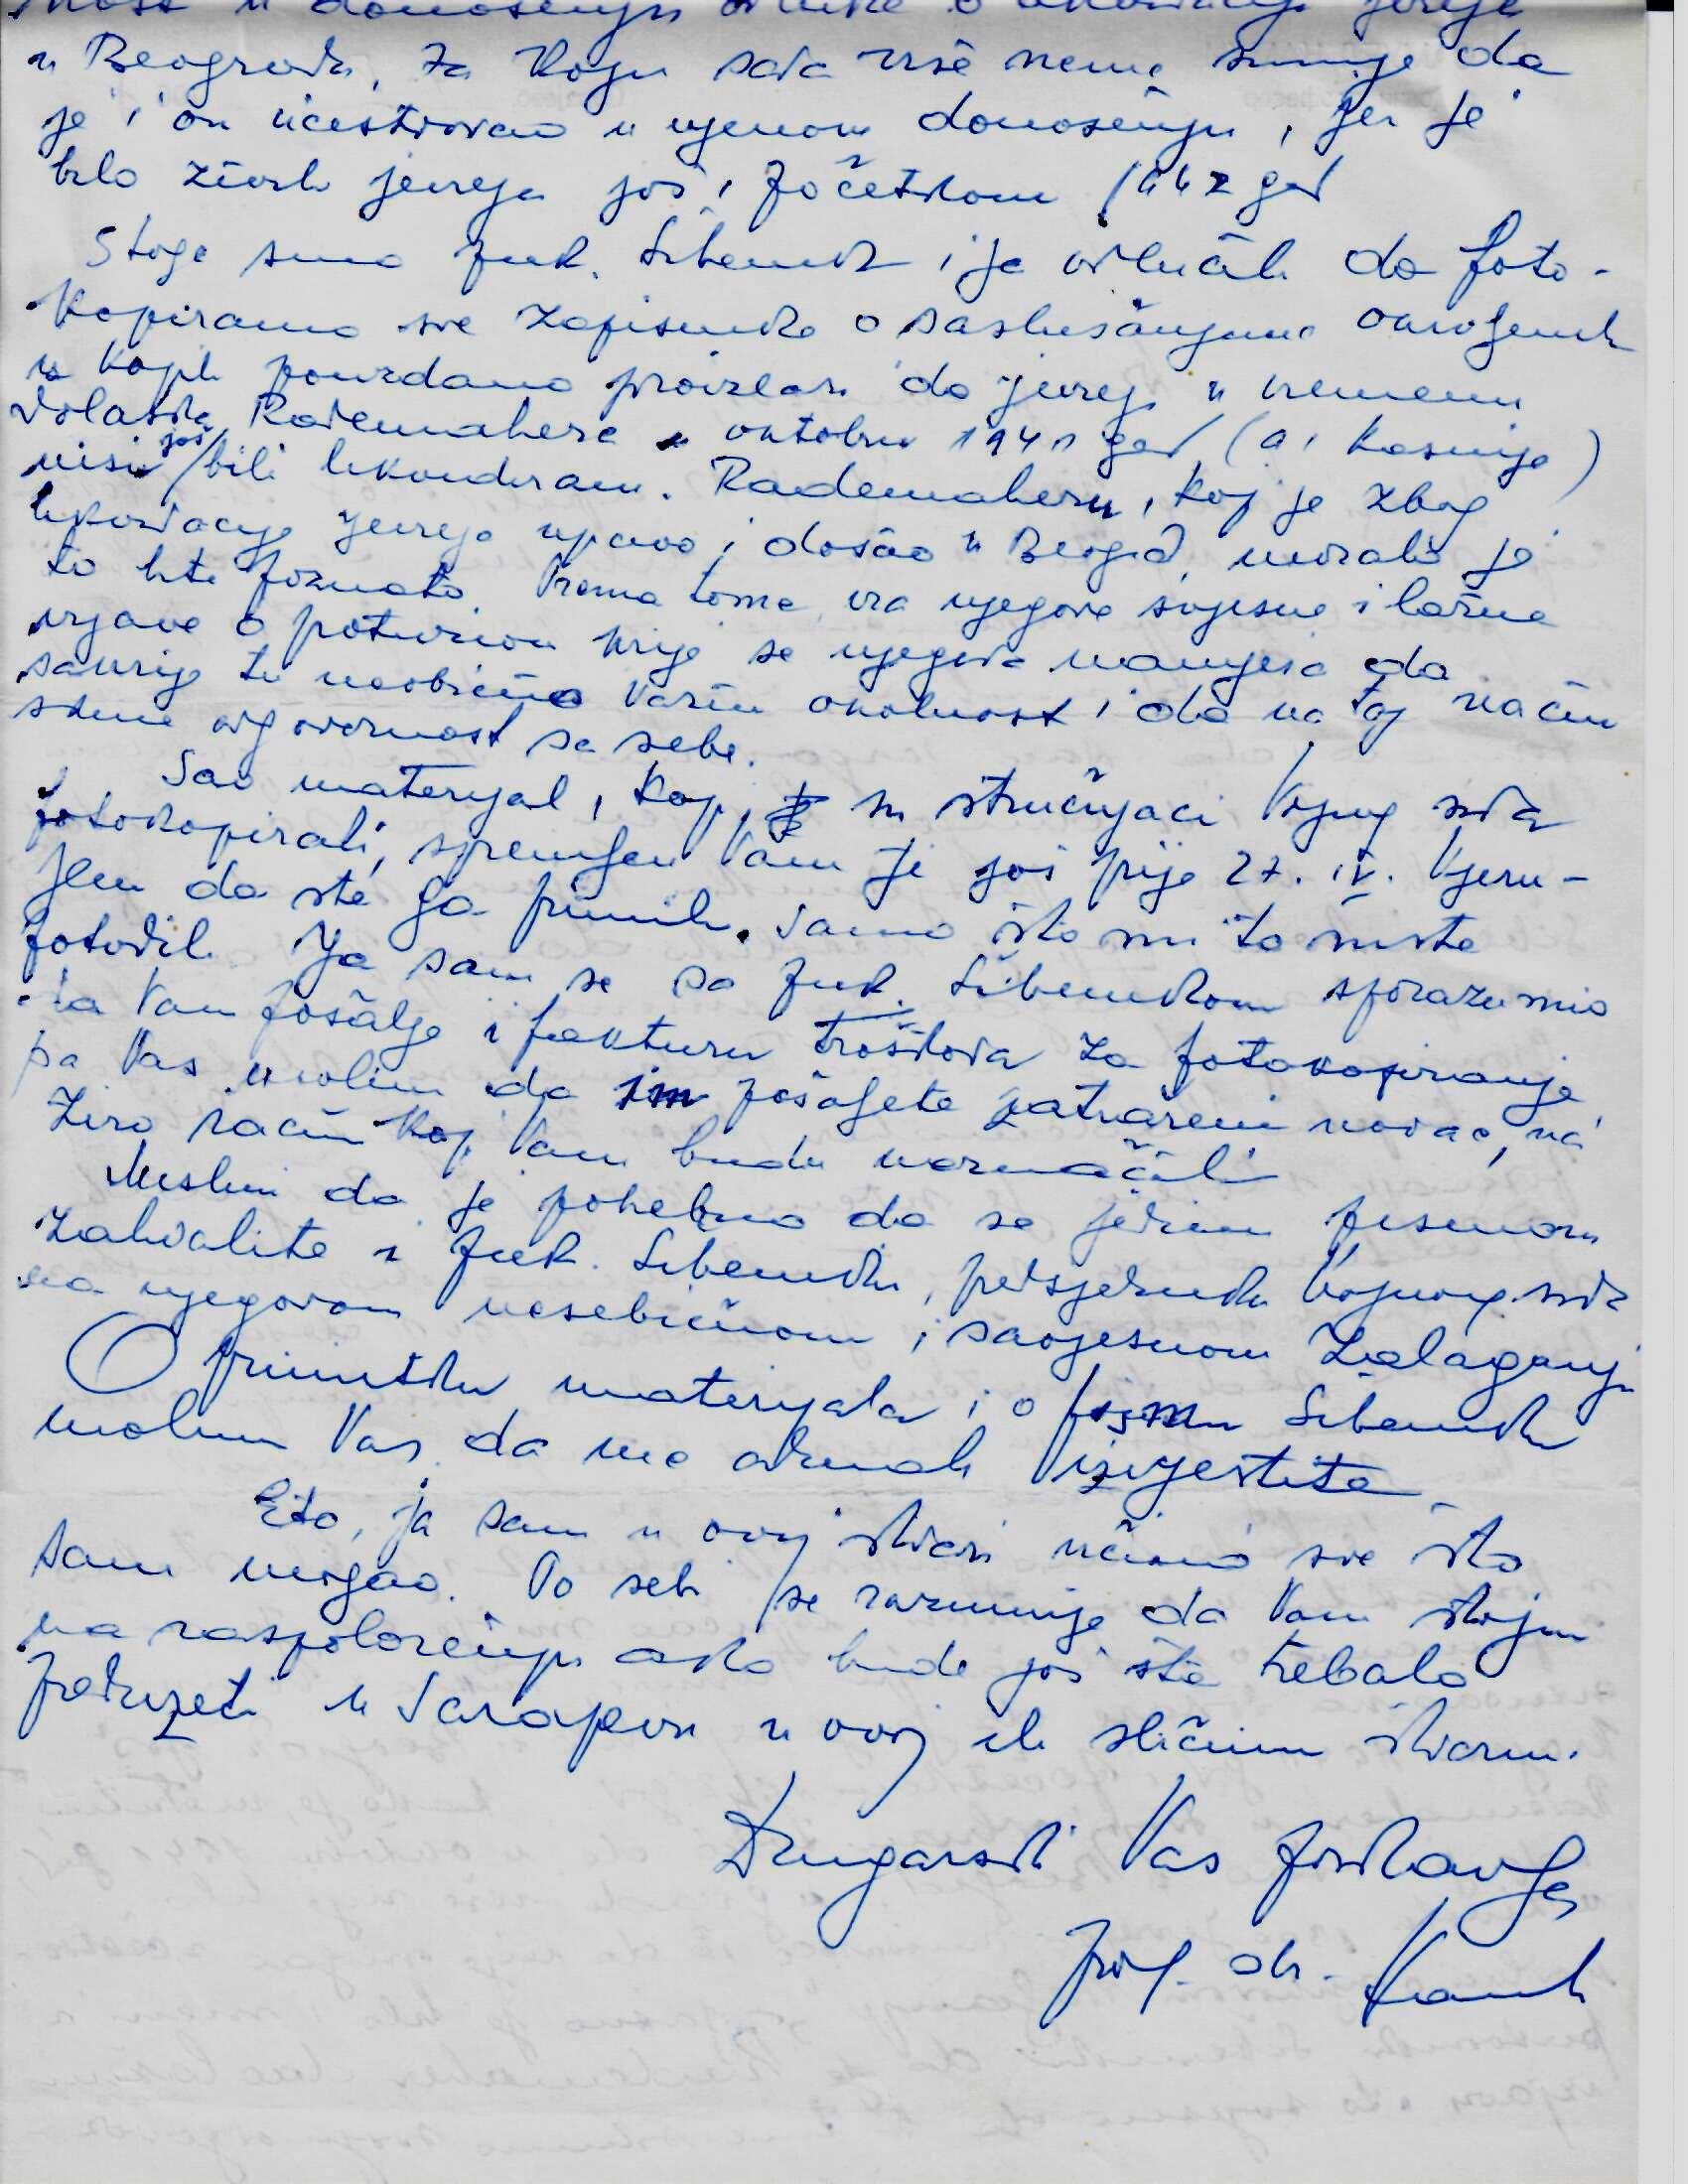 u donošenju odluke o likvidaciji jevreja
u Beogradu, za koju sada više nema sumnje da
je i on učestvovao u njenom donošenju, jer je
bilo živih jevreja još i početkom 1942 god
Stoga smo puk. Šibenik i ja odlučili da foto-
kopiramo sve zapisnike o saslušanjima
iz kojih pouzdano proizlazi da jevreji u vremenu
dolaska Rademahera u oktobru 1941 god (a i kasnije)
nisu još bili likvidirani. Rademaheru, koji je zbog
likvidacije jevreja upravo i došao u Beograd, moralo je
to biti poznato. Prema tome iza njegove svijesne i lažne
izjave o krije se njegova namjera da
sakrije tu neobično važnu okolnost i da na taj način
skine odgovornost sa sebe.
Sav materijal, koji su stručnjaci Vojnog suda
fotokopirali, spremljen Vam je još prije 27. IV. Vjeru-
jem da ste ga primili. Samo što mi to niste
potvrdili. Ja sam se sa puk. Šibenikom sporazumio
da Vam pošalje i fakturu troškova za fotokopiranje
pa Vas molim da im pošaljete zatraženi novac, na
žiro račun koji Vam budu naznačili
Mislim da je potrebno da se jednim pismom
zahvalite i puk. Šibeniku, predsjedniku Vojnog suda
na njegovom nesebičnom i savjesnom zalaganju
O primitku materijala i o pismu Šibeniku
molim Vas da me odmah izvjestite
Eto, ja sam u ovoj stvari učinio sve što
sam mogao. Po sebi se razumije da Vam stojim
na raspoloženju ako bude još šta trebalo
preduzeti u Sarajevu u ovoj ili sličnim stvarima.
Drugarski Vas pozdravlja
prof. dr.